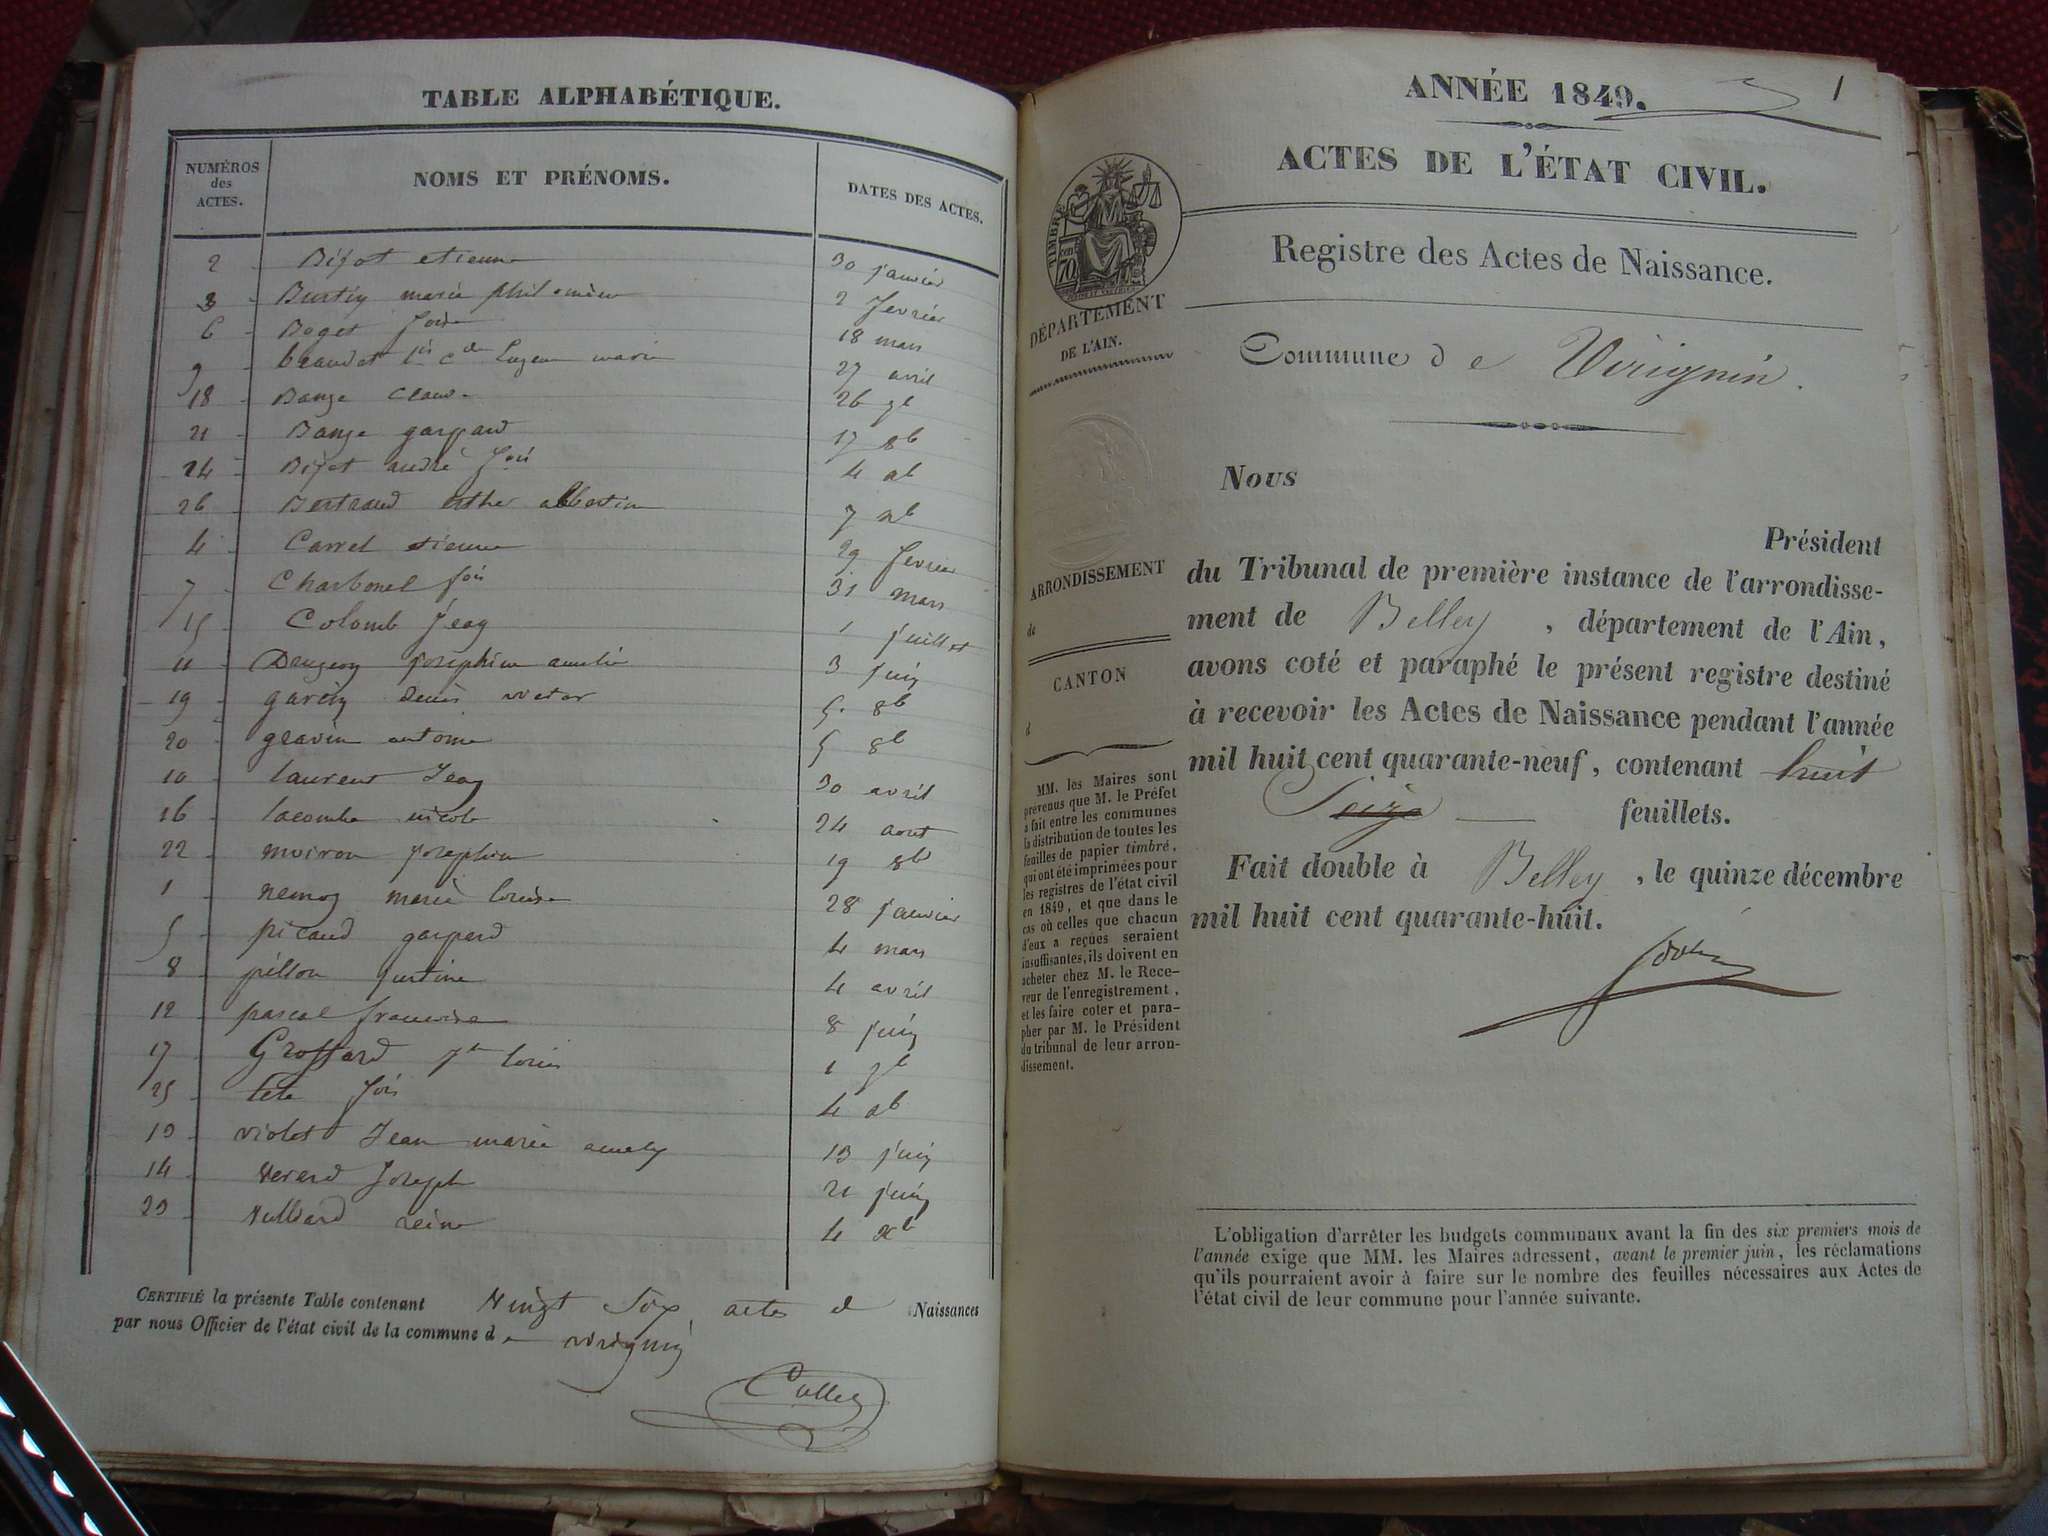 TABLE ALPHABÉTIQUE.
NUMÉROS des ACTES.
NOMS ET PRÉNOMS.
DATES DES ACTES.
2 Bijot etienne 30 janvier
3 Burtin marie philomène 2 fevrier
6 Boget 18 mars
9 marie 27 avril
18 Bange Claud. 26 7b
21 Bange gaspard 17 8b
24 Bijot andré 4 xb
26 Bertrand esther albertine 7 xb
4 Carrel etienne 29 fevrier
7 Charbonel fois 31 mars
15 Colomb Jean 1 juillet
11 josephine amelie 3 juin
19 garcin denis victor 5 8b
20 gravin antoine 5 8b
10 laurent Jean 30 avril
16 lacombe nicole 24 aout
22 moiron josephine 19 8b
1 nemoz marie louise 28 janvier
5 picaud gaspard 4 mars
8 pillon justine 4 avril
12 pascal francoise 8 juin
17 Grossard louis 1 7b
25 tete fois 4 xb
13 violet Jean marie 13 juin
14 verard Joseph 21 juin
23 Vulliard reine 4 xb
CERTIFIÉ la présente Table contenant Vingt Six actes de Naissances
par nous Officier de l'état civil de la commune de virignin
Cullet
1
ANNÉE 1849.
ACTES DE L'ÉTAT CIVIL.
Registre des Actes de Naissance.
TIMBRE
70
DÉPARTEMENT
DE L'AIN.
Commune de Virignin.
Nous
Président
du Tribunal de première instance de l'arrondisse-
ment de Belley, département de l'Ain,
avons coté et paraphé le présent registre destiné
à recevoir les Actes de Naissance pendant l'année
mil huit cent quarante-neuf, contenant huit
Seize feuillets.
Fait double à Belley, le quinze décembre
mil huit cent quarante-huit.
ARRONDISSEMENT
de
CANTON
d
MM. les Maires sont
prévenus que M. le Préfet
a fait entre les communes
la distribution de toutes les
feuilles de papier timbré,
qui ont été imprimées pour
les registres de l'état civil
en 1849, et que dans le
cas où celles que chacun
d'eux a reçues seraient
insuffisantes, ils doivent en
acheter chez M. le Rece-
veur de l'enregistrement,
et les faire coter et para-
pher par M. le Président
du tribunal de leur arron-
dissement.
L'obligation d'arrêter les budgets communaux avant la fin des six premiers mois de
l'année exige que MM. les Maires adressent, avant le premier juin, les réclamations
qu'ils pourraient avoir à faire sur le nombre des feuilles nécessaires aux Actes de
l'état civil de leur commune pour l'année suivante.